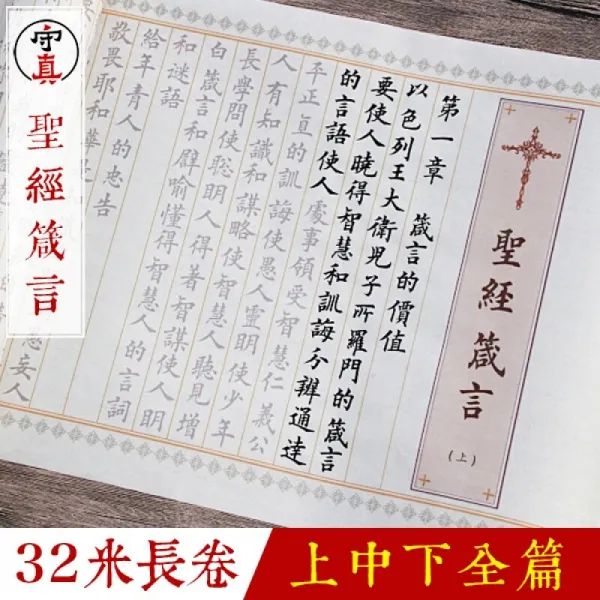 守真
聖經箴言
聖經箴言
(上)
第一章 箴言的價值
以色列王大衛兒子所羅門的箴言
要使人曉得智慧和訓誨分辨通達
的言語使人處事領受智慧仁義公
平正直的訓誨使愚人靈明使少年
人有知識和謀略使智慧人聽見增
長學問使聰明人得著智謀使人明
白箴言和譬喻懂得智慧人的言詞
和謎語
給年青人的忠告
敬畏耶和華是
妄人
32米長卷
上中下全篇